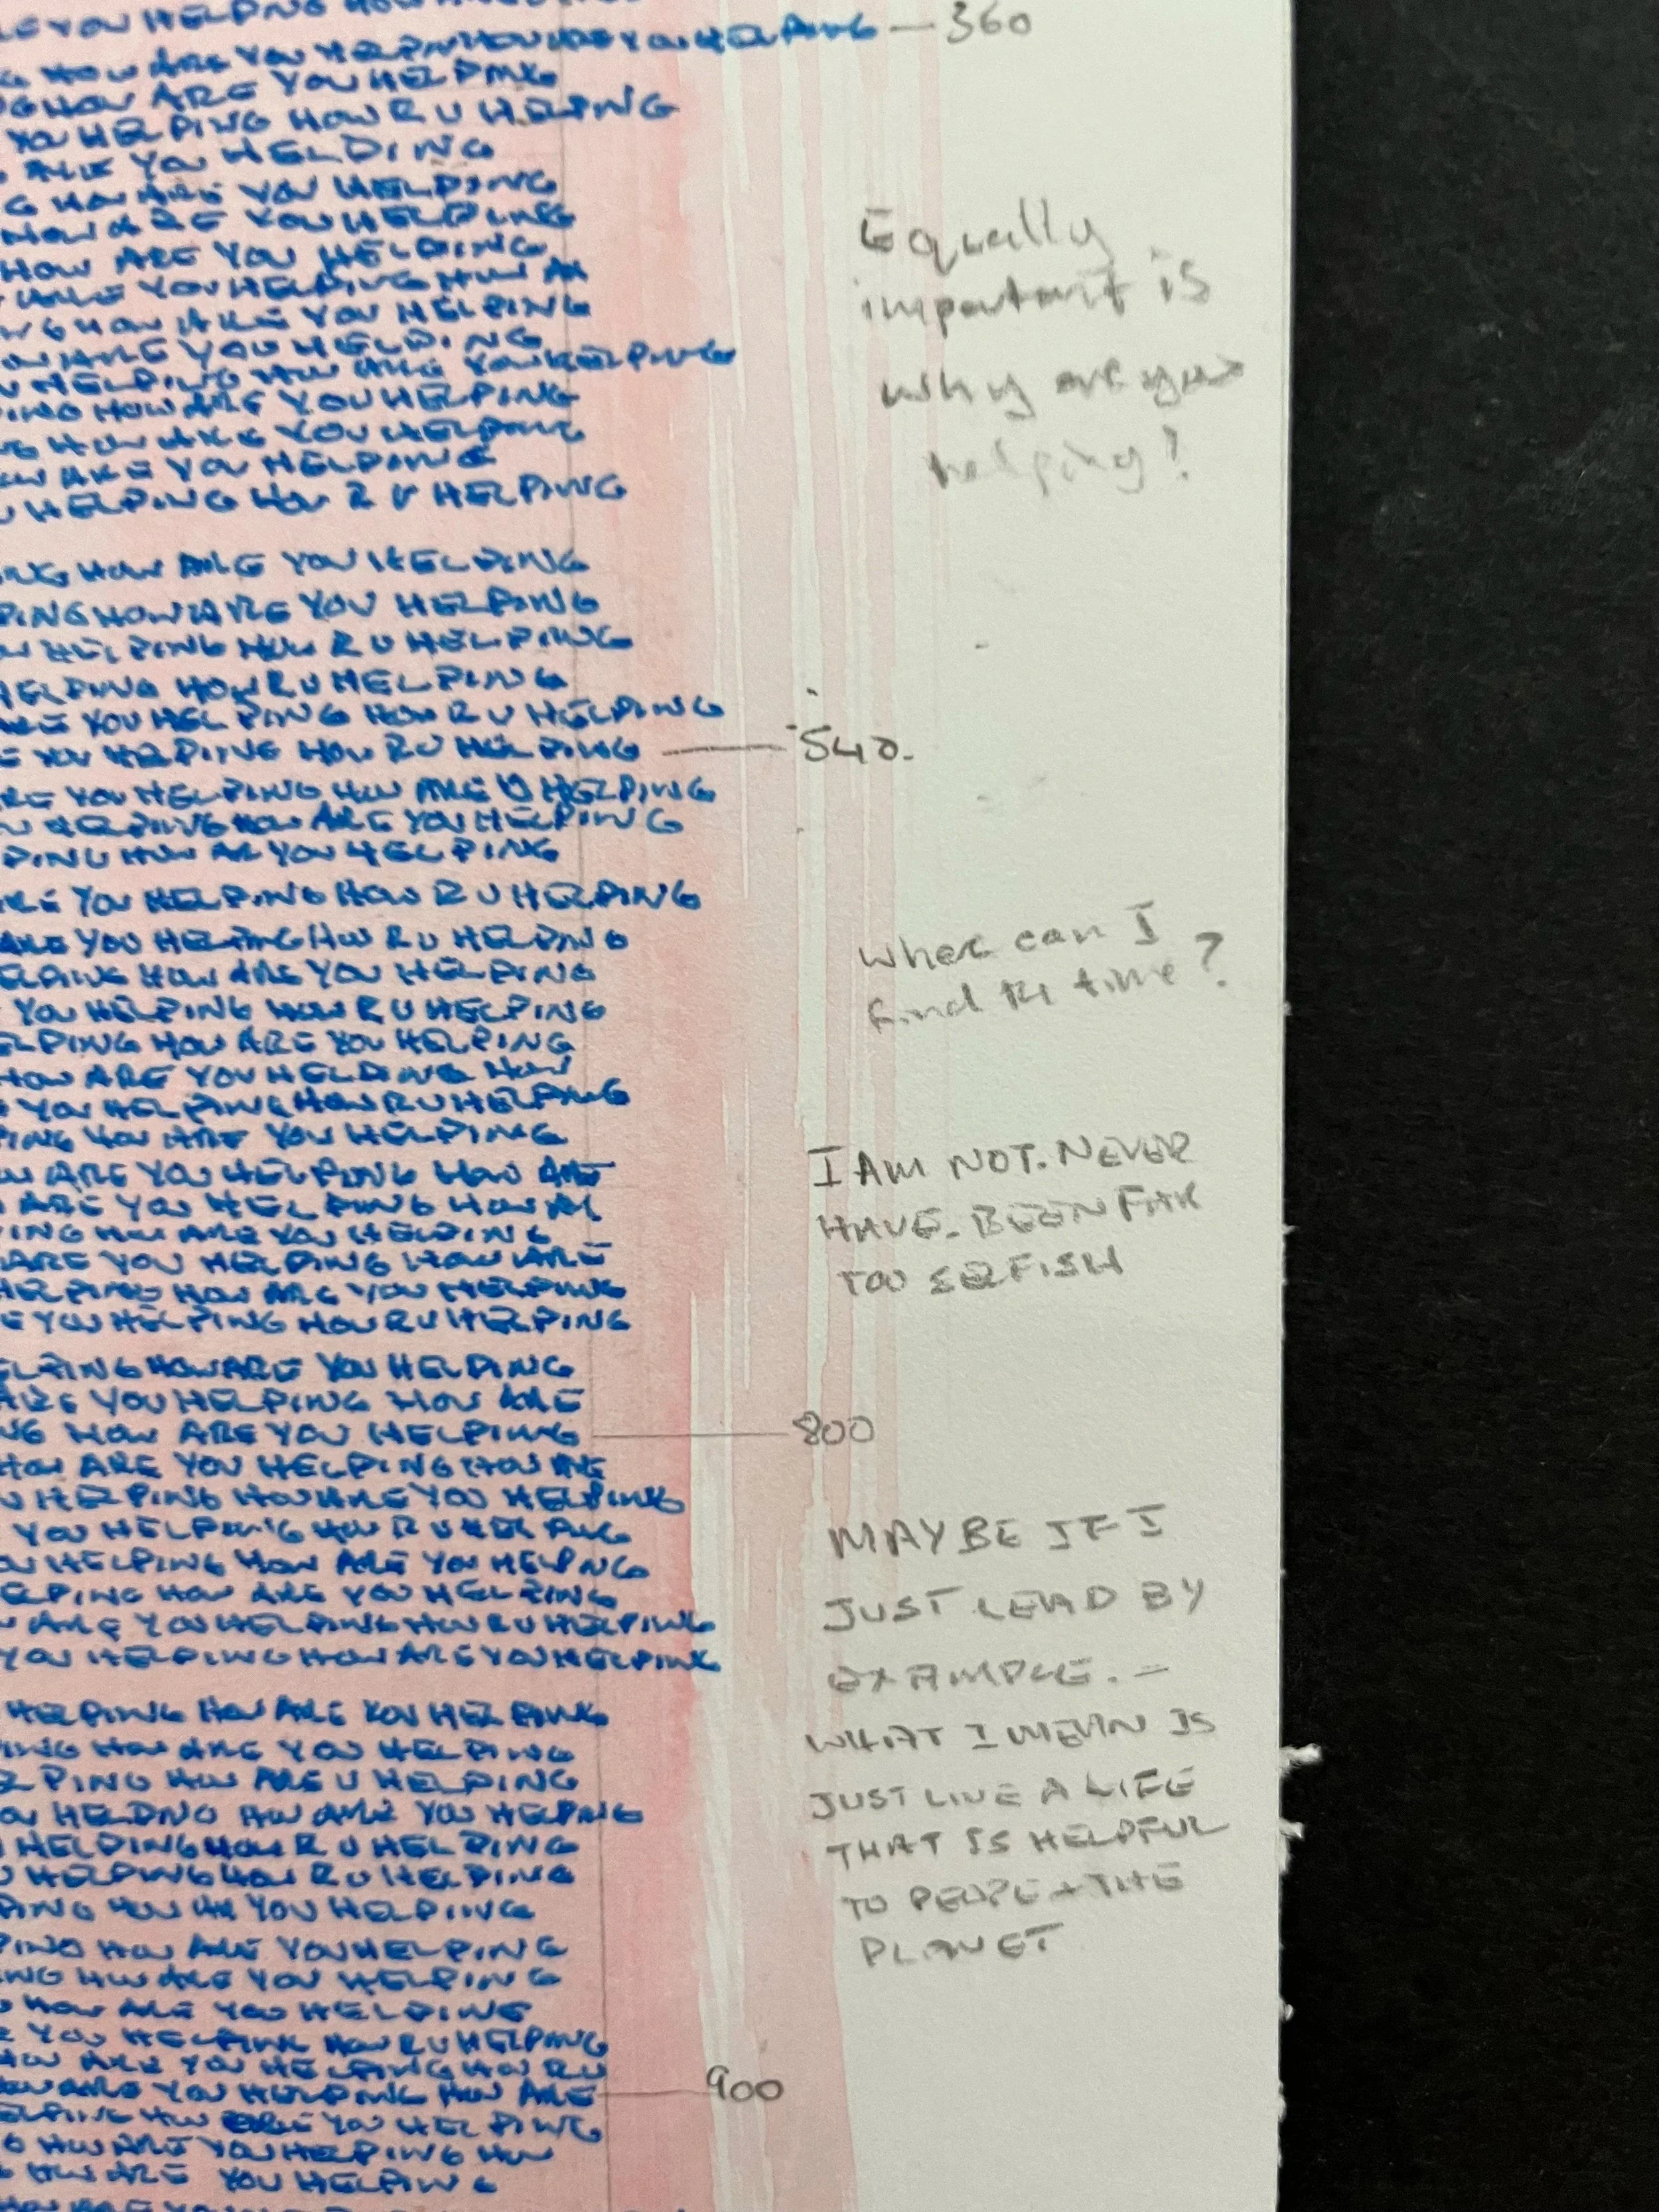 E YOU HELPING
G HOW ARE YOU HELPIN HOW ARE YOU HELPING — 360
G HOW ARE YOU HELPING
YOU HELPING HOW R U HELPING
ARE YOU HELPING
G HOW ARE YOU HELPING
HOW ARE YOU HELPING
HOW ARE YOU HELPING
ARE YOU HELPING HOW AR
NG HOW ARE YOU HELPING
OW ARE YOU HELPING
U HELPING HOW ARE YOU HELPING
PING HOW ARE YOU HELPING
NG HOW ARE YOU HELPING
OW ARE YOU HELPING
U HELPING HOW R U HELPING
Equally
important is
why are you
helping?
ING HOW ARE YOU HELPING
PING HOW ARE YOU HELPING
U HELPING HOW R U HELPING
HELPING HOW R U HELPING
ARE YOU HELPING HOW R U HELPING
E YOU HELPING HOW R U HELPING — 540.
RE YOU HELPING HOW ARE U HELPING
U HELPING HOW ARE YOU HELPING
PING HOW AR YOU HELPING
ARE YOU HELPING HOW R U HELPING
ARE YOU HELPING HOW R U HELPING
ELPING HOW ARE YOU HELPING
YOU HELPING HOW R U HELPING
ELPING HOW ARE YOU HELPING
HOW ARE YOU HELPING HOW
E YOU HELPING HOW R U HELPING
PING HOW ARE YOU HELPING
W ARE YOU HELPING HOW ARE
ARE YOU HELPING HOW AR
PING HOW ARE YOU HELPING
ARE YOU HELPING HOW ARE
HELPING HOW ARE YOU HELPING
E YOU HELPING HOW R U HELPING
where can I
find the time?
I AM NOT. NEVER
HAVE. BEEN FAR
TOO SELFISH
ELPING HOW ARE YOU HELPING
ARE YOU HELPING HOW ARE
NG HOW ARE YOU HELPING — 800
HOW ARE YOU HELPING HOW ARE
U HELPING HOW ARE YOU HELPING
YOU HELPING HOW R U HELPING
OU HELPING HOW ARE YOU HELPNG
ELPING HOW ARE YOU HELPING
W ARE YOU HELPING HOW R U HELPING
YOU HELPING HOW ARE YOU HELPING
HELPING HOW ARE YOU HELPING
PING HOW ARE YOU HELPING
ELPING HOW ARE U HELPING
OU HELPING HOW ARE YOU HELPING
U HELPING HOW R U HELPING
U HELPING HOW R U HELPING
PING HOW AR YOU HELPING
PING HOW ARE YOU HELPING
ING HOW ARE YOU HELPING
HOW ARE YOU HELPING
E YOU HELPING HOW R U HELPING
HOW ARE YOU HELPING HOW R U
HOW ARE YOU HELPING HOW ARE — 900
ELPING HOW ARE YOU HELPING
G HOW ARE YOU HELPING HOW
G HOW ARE YOU HELPING
MAYBE IF I
JUST LEAD BY
EXAMPLE. —
WHAT I MEAN IS
JUST LIVE A LIFE
THAT IS HELPFUL
TO PEOPLE + THE
PLANET